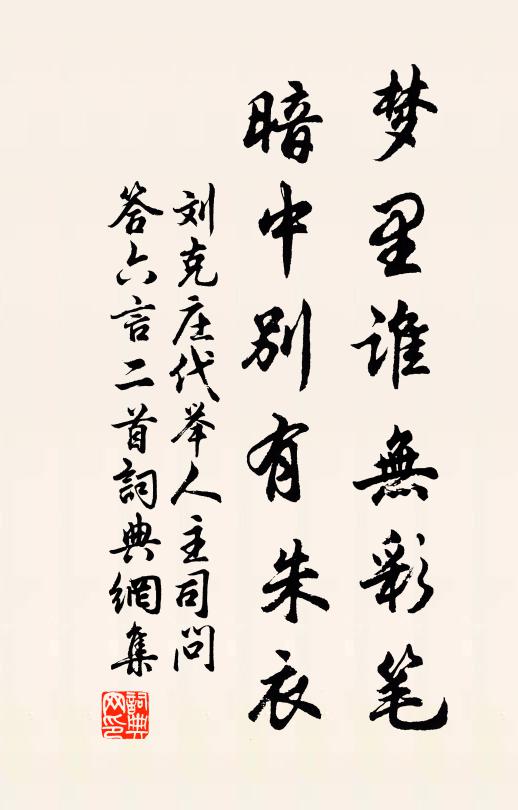 梦里谁無彩笔
暗中别有朱衣
刘克庄代举人主司问
答六言二首詞典網集
詞典网印